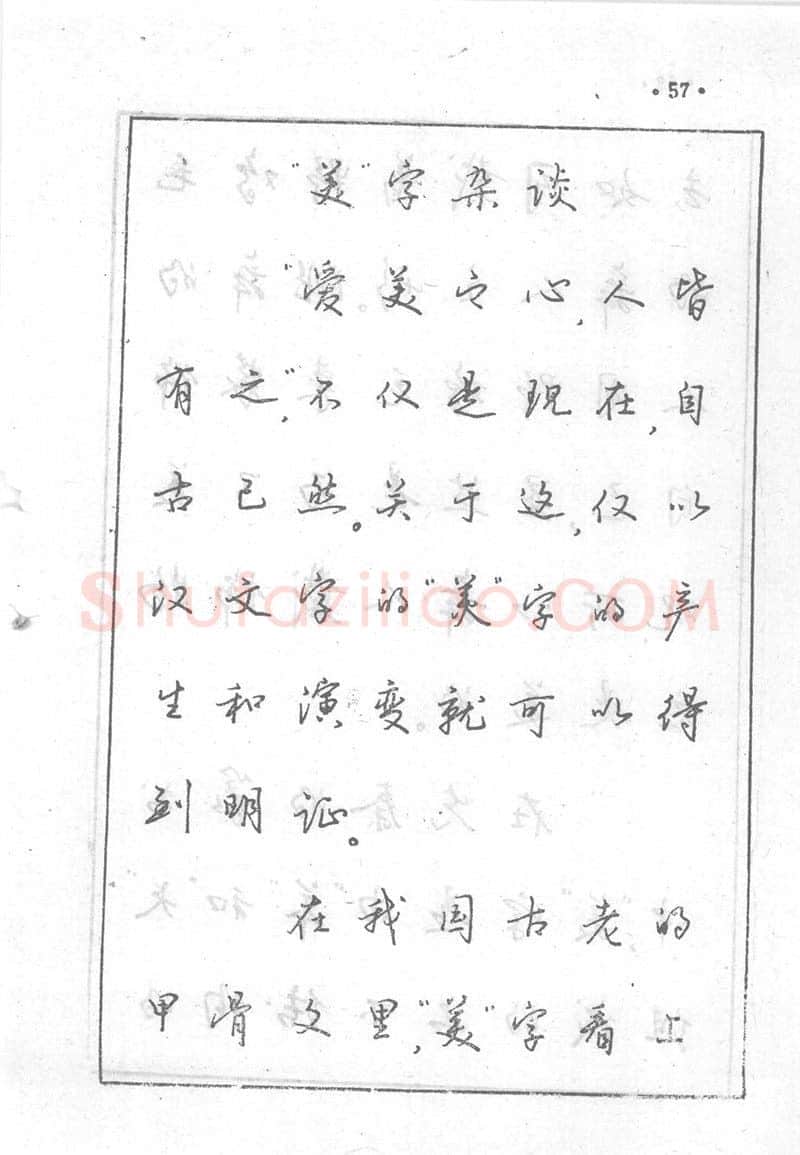 ·57·
“美”字杂谈
“爱美之心,人皆
有之”,不仅是现在,自
古已然。关于这,仅以
汉文字的“美”字的产
生和演变就可以得
到明证。
在我国古老的
甲骨文里,“美”字看上
Shufaziliao.COM